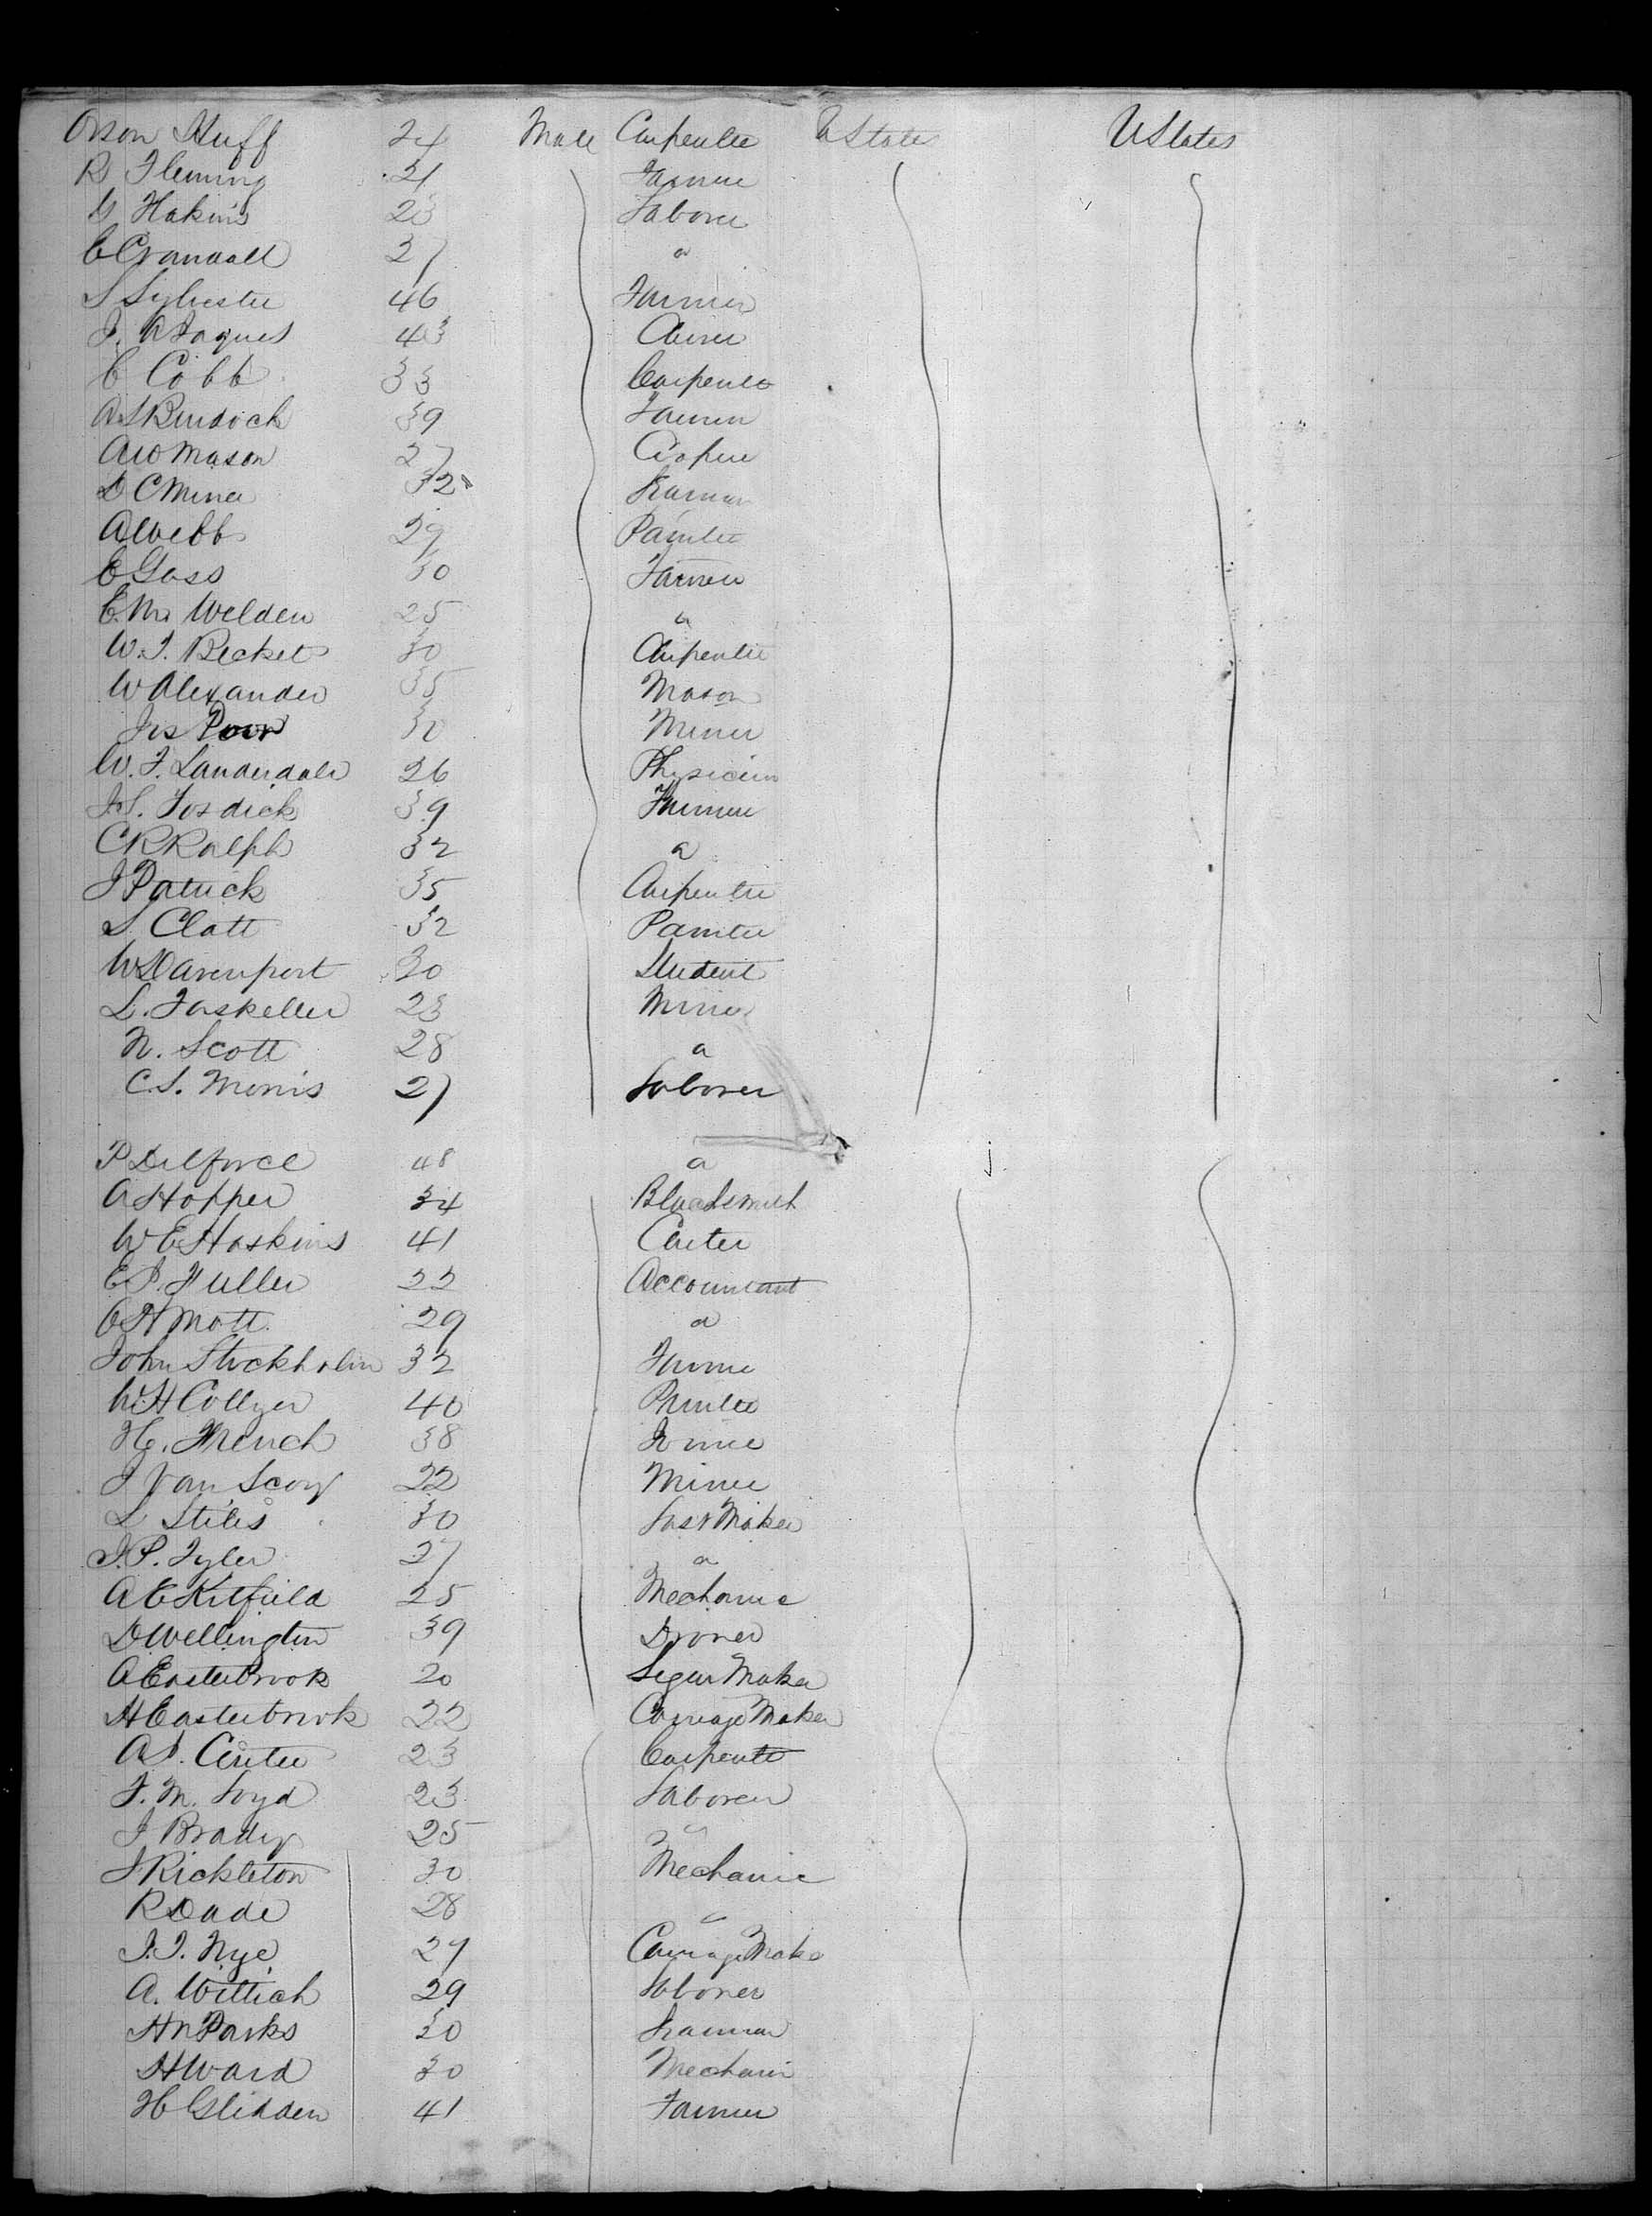 Orson Huff 24 Male Carpenter UStates UStates
R Fleming 21 Farmer
G Hakins 23 Laborer
C Crandall 27 "
S Sylvester 46 Farmer
J. A Jaques 43
C Cobb 33 Carpenter
A S Burdock 39 Farmer
A W Mason 27 Cooper
D C Miner 32 Seaman
A Webb 29 Painter
E Goss 30 Farmer
E. M. Welden 25 "
W. J. Becket 30 Carpenter
W Alexander 35 Mason
Jas Poor 30 Miner
W. F. Lauderdale 26 Physician
J. S. Fosdick 39 Farmer
C R Ralph 32 "
J Patrick 35 Carpenter
S Clatt 32 Painter
W Davenport 30 Student
L. Faskeller 23 Miner
N. Scott 28 "
C. S. Morris 27 Laborer
P Delforce 48 "
A Hopper 34 Blacksmith
W E Hoskins 41 Carter
E P. Fuller 22 Accountant
O H Mott 29 "
John Stockholm 32 Farmer
W H Collyer 40 Printer
H. French 38
J Van Scoy 22 Miner
L Stiles 30 Last Maker
J. P. Tyler 27 "
A E Kitfield 25 Mechanic
D Wellington 39 Drover
A Easterbrook 20 Segar Maker
H Easterbrook 22 Carriage Maker
A P. Carter 23 Carpenter
F. M. Loyd 23 Laborer
J Brady 25 "
J Rickleton 30 Mechanic
R Dade 28 "
J. J. Nye 27 Carriage Maker
A. Wittich 29 Laborer
H N Parks 30 Seaman
H Ward 30 Mechanic
H Glidden 41 Farmer